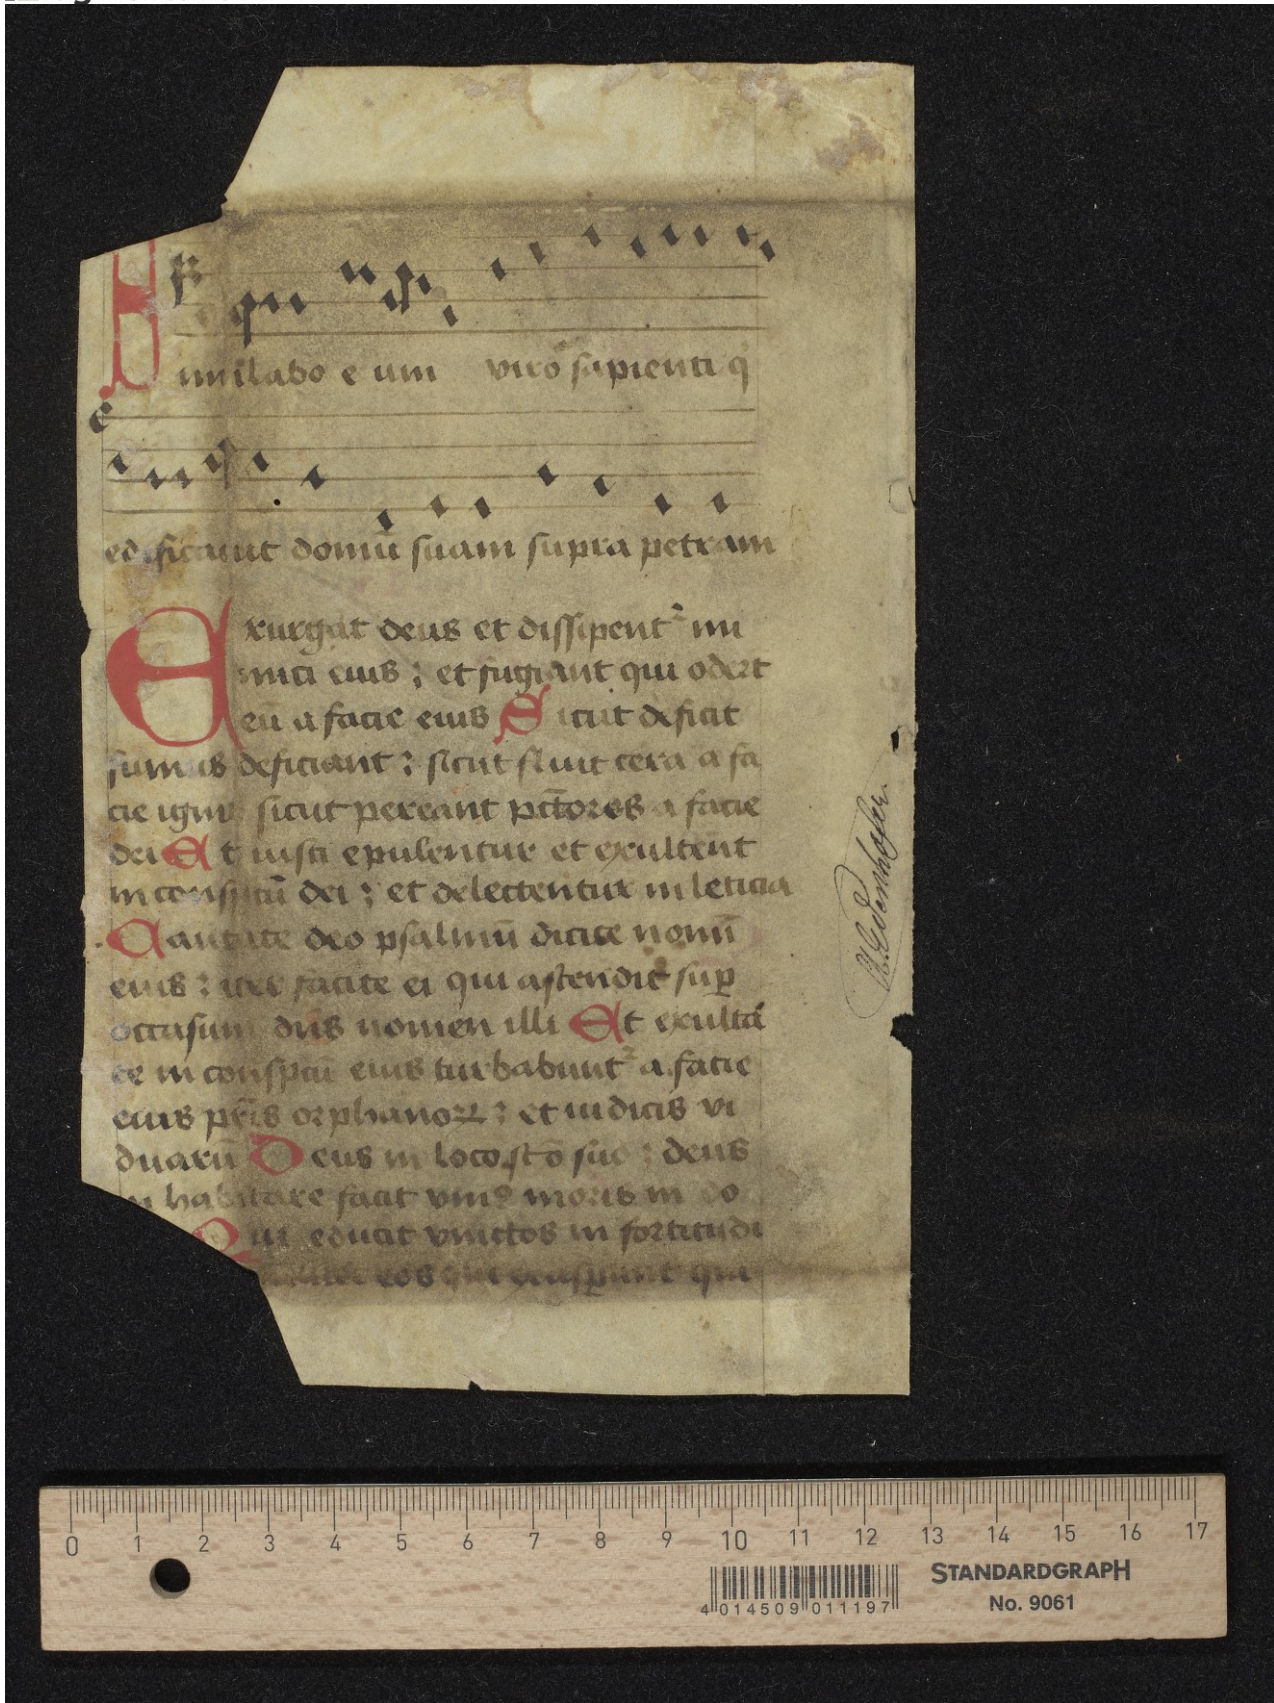 similabo e um viro sapienti q̇
edificauit domū suam supra petram
Exurgat deus et dissipent᷑ ini
mici eius ; et fugiant qui odert
eū a facie eius Sicut deficit
fumus deficiant ; sicut fluit cera a fa
cie ignis sicut pereant pctōres a facie
dei Et iusti epulentur et exultent
in conspctū dei ; et delectentur in leticia
Cantate deo psalmū dicite nomī
eius ; iter facite ei qui ascendit suꝑ
occasum dn̄s nomen illi Et exultā
te in conspctū eius turbabunt᷑ a facie
eius pr̄is orphanoꝝ ; et iudicis vi
duarū Deus in loco sc̄o suo ; deus
in habitare facit vniꝰ moris in do
Qui educit vinctos in fortitudi
eos qui exasꝑant qui
STANDARDGRAPH
No. 9061
0 1 2 3 4 5 6 7 8 9 10 11 12 13 14 15 16 17
4 014509 011197